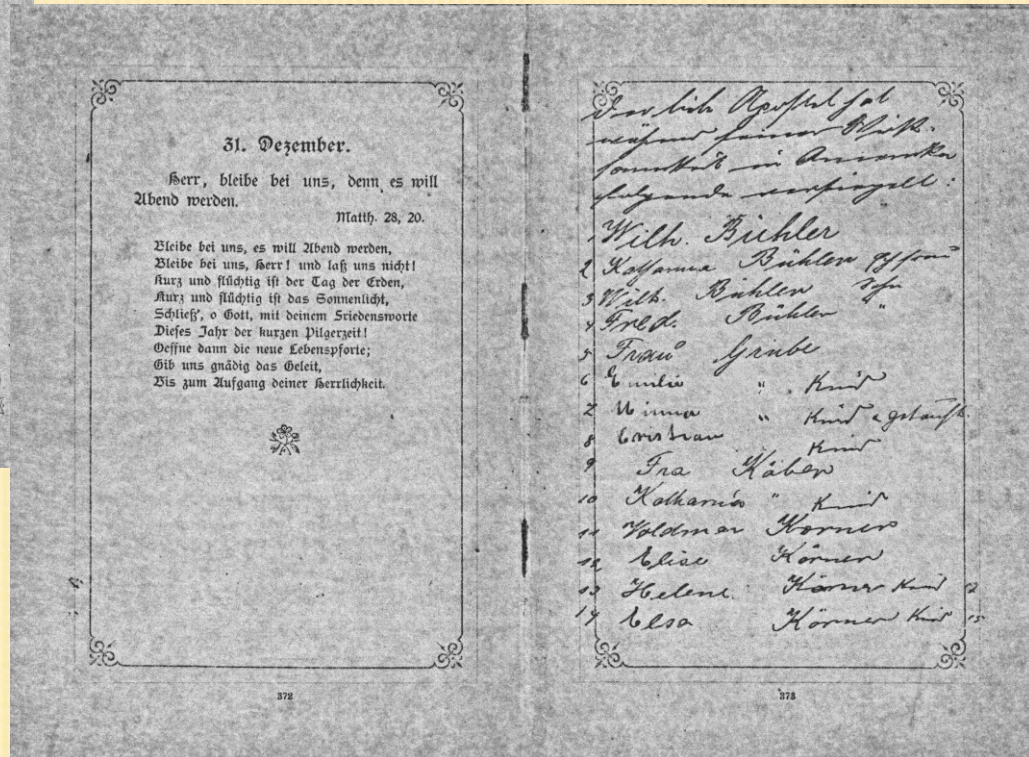 31. Dezember.
Herr, bleibe bei uns, denn es will
Abend werden.
Matth. 28, 20.
Bleibe bei uns, es will Abend werden,
Bleibe bei uns, Herr! und laß uns nicht!
Kurz und flüchtig ist der Tag der Erden,
Kurz und flüchtig ist das Sonnenlicht,
Schließ', o Gott, mit deinem Friedensworte
Dieses Jahr der kurzen Pilgerzeit!
Oeffne dann die neue Lebenspforte;
Gib uns gnädig das Geleit,
Bis zum Aufgang deiner Herrlichkeit.
372
Der liebe Apostel hat
während seiner Wirk-
samkeit in Amerika
folgende versiegelt:
1 Wilh. Bühler
2 Katharina Bühler Ehefrau
3 Wilh. Bühler Sohn
4 Fred. Bühler "
5 Frau Grube
6 Emilie " Kind
7 Minna " Kind getauft
8 Cristian Kind
9 Fra Köber
10 Katharina " Kind
11 Woldmar Körner
12 Elise Körner
13 Helene Körner Kind
14 Elsa Körner Kind 15
373